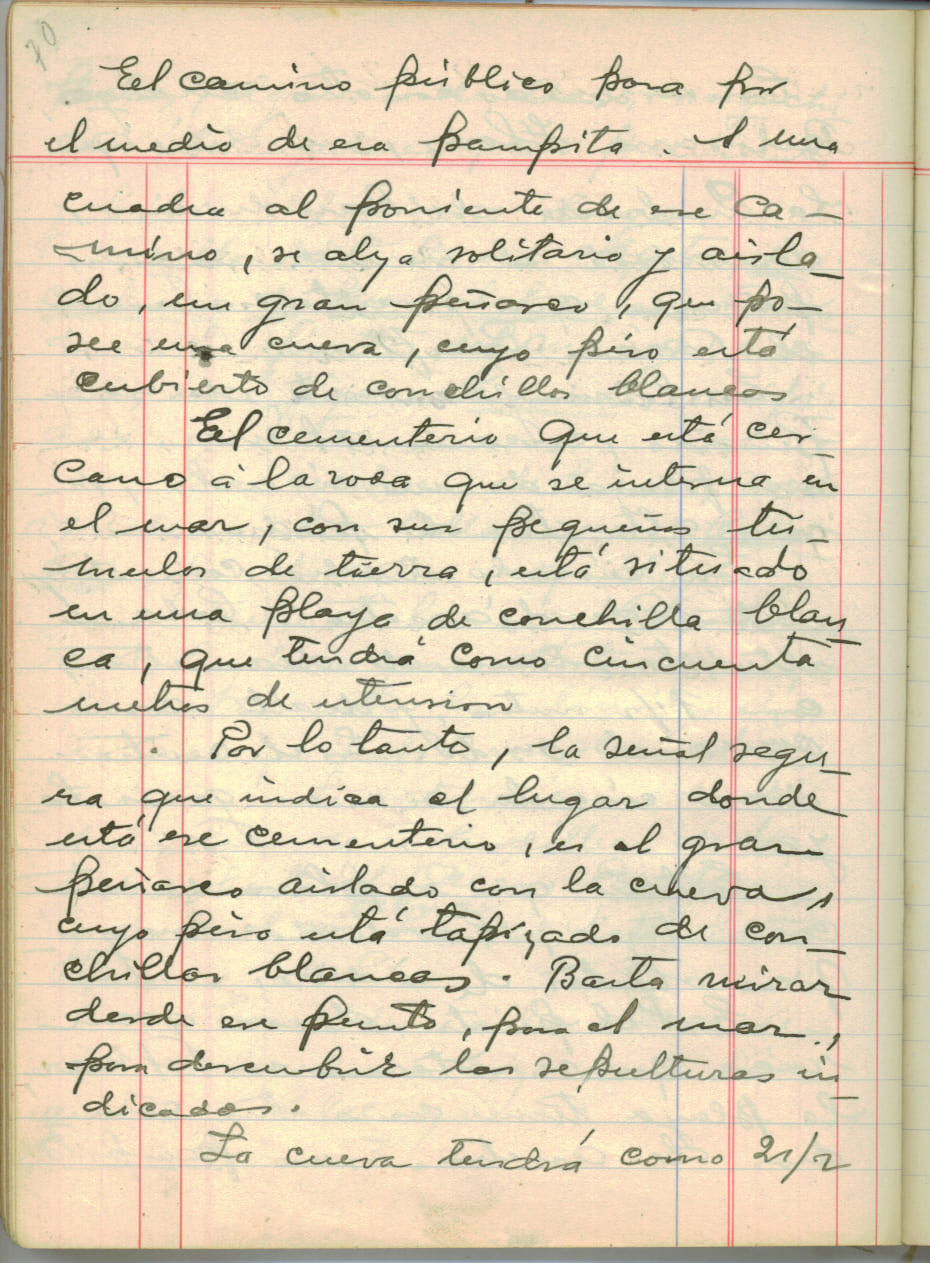 70
El camino público pasa por
el medio de esa pampita. A una
cuadra al poniente de ese ca-
mino, se alza solitario y aisla-
do, un gran peñasco, que po-
see una cueva, cuyo piso está
cubierto de conchillas blancas
El cementerio que está cer
cano á la roca que se interna en
el mar, con sus pequeños tú-
mulos de tierra, está situado
en una playa de conchilla blan
ca, que tendrá como cincuenta
metros de extension
Por lo tanto, la señal segu-
ra que indica el lugar donde
está ese cementerio, es el gran
peñasco aislado con la cueva,
cuyo piso está tapizado de con-
chillas blancas. Basta mirar
desde ese punto, para el mar,
para descubrir las sepulturas in
dicadas.
La cueva tendrá como 2 1/2